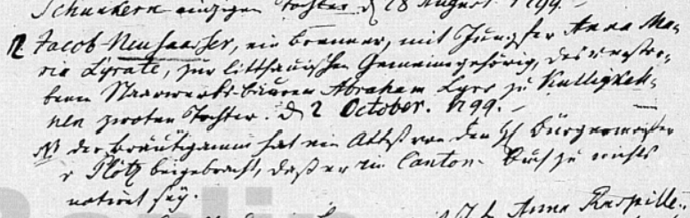 Schunkern einzigen Tochter d 28 August. 1799.
12 Jacob Neuhausser, ein Brenner, mit Jungfer Anna Ma-
ria Lyrate, zur litthauischen Gemeine gehörig, des verstor-
benen Abraham Lyer zu Kulligkeh-
nen zwoten Tochter. d 2 October. 1799.
NB der Bräutigamm hat ein Attest von den H Bürgermeister
r Plötz beigebracht, daß er in Canton-Buch zu nichts
notirt sey.
Anna Raspille
Berlin